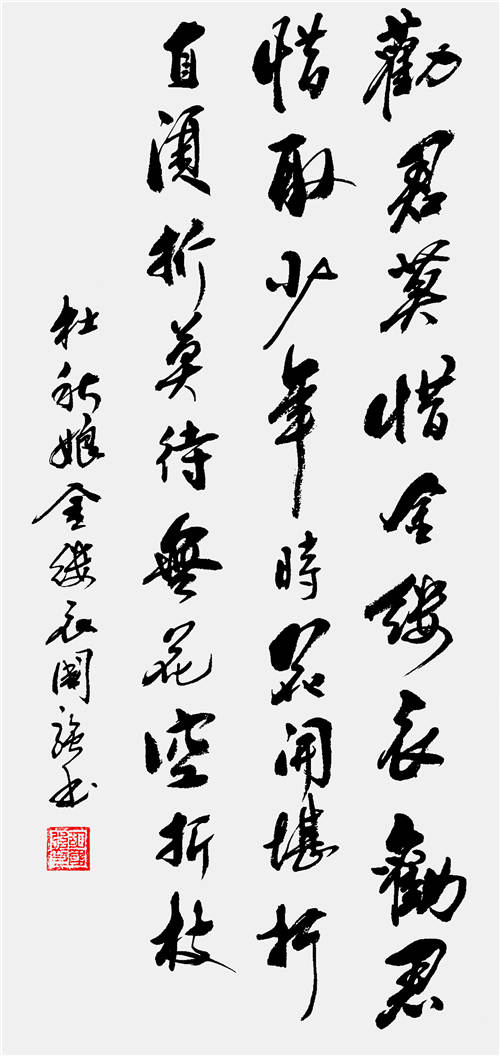 勸君莫惜金縷衣勸君
惜取少年時花開堪折
直須折莫待無花空折枝
杜秋娘金縷衣强书